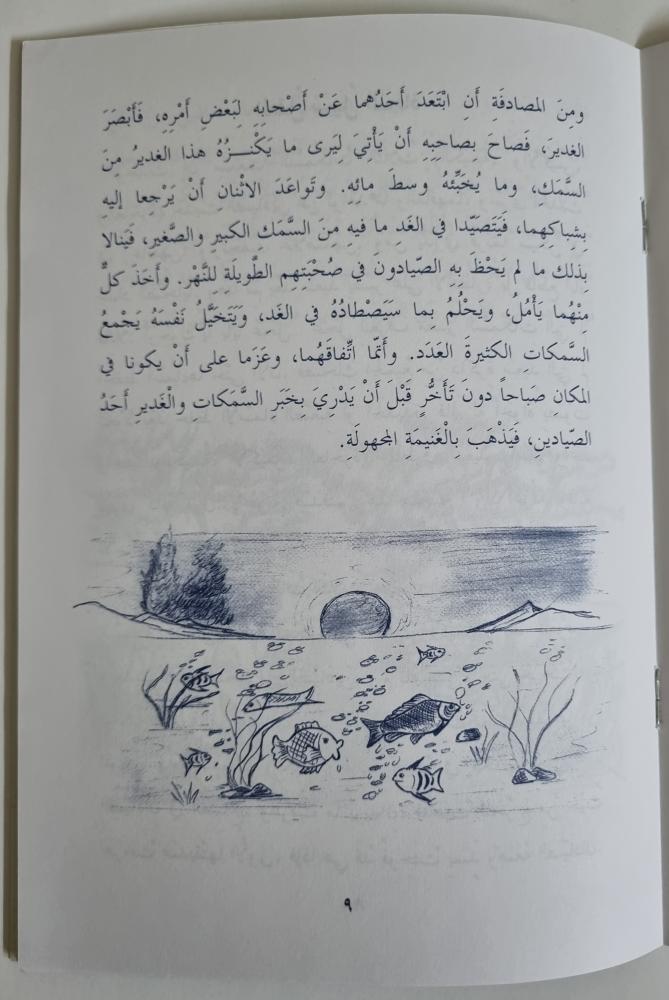 ومِنَ المصادفَةِ أَنِ ابْتَعَدَ أَحَدُهما عَنْ أَصْحابِهِ لِبَعْضِ أَمْرِهِ، فَأَبْصَرَ
الغديرَ، فَصاحَ بِصاحِبِهِ أَنْ يَأْتِيَ لِيَرى ما يَكْنِـزُهُ هذا الغديرُ مِنَ
السَّمَكِ، وما يُخَبِّئُهُ وسطَ مائِهِ. وتَواعَدَ الاثْنانِ أَنْ يَرْجعا إليهِ
بِشِباكِهِما، فَيَتَصَيّدا في الغَدِ ما فيهِ مِنَ السَّمَكِ الكبيرِ والصَّغيرِ، فَيَنالا
بِذلك ما لم يَحْظَ بِهِ الصّيادونَ في صُحْبَتِهِم الطَّويلَةِ لِلنَّهْر. وأَخَذَ كلٌّ
مِنْهُما يَأْمُلُ، ويَحْلُمُ بِما سَيَصْطادُهُ في الغَدِ، وَيَتَخَيَّلُ نَفْسَهُ يَجْمعُ
السَّمكاتِ الكثيرةَ العَدَدِ. وأَتمّا اتِّفاقَهُما، وعَزَما على أَنْ يكونا في
المكانِ صَباحاً دونَ تَأَخُّرٍ قَبْلَ أَنْ يَدْرِيَ بِخَبَرِ السَّمَكاتِ والْغَديرِ أَحَدُ
الصّيادينِ، فَيَذْهَبَ بِالْغَنيمَةِ المجهولَةِ.
٩